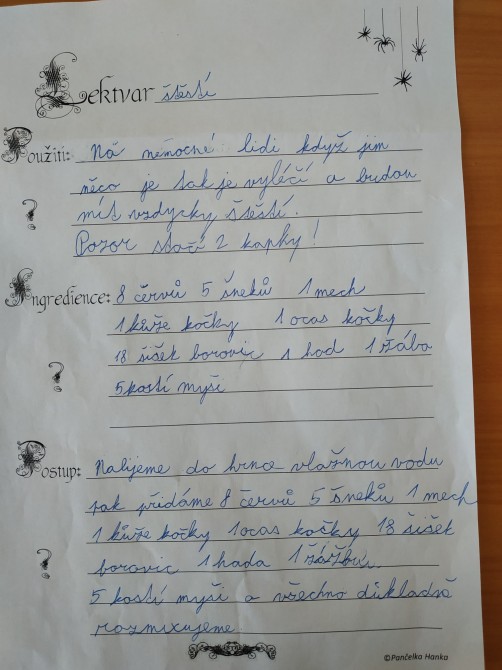 Lektvar štěstí
Použití: Na němocné lidi když jim
něco je tak je vyléčí a budou
? mít vzdycky štěstí.
Pozor stačí 2 kapky!
Ingredience: 8 červů 5 šneků 1 mech
1 kůže kočky 1 ocas kočky
18 šišek borovic 1 had 1 žába
? 5 kostí myši
Postup: Nalijeme do hrnce vlažnou vodu
tak přidáme 8 červů 5 šneků 1 mech
1 kůže kočky 1 ocas kočky 18 šišek
? borovic 1 hada 1
5 kostí myši a všechno důkladně
rozmixujeme
©Pančelka Hanka